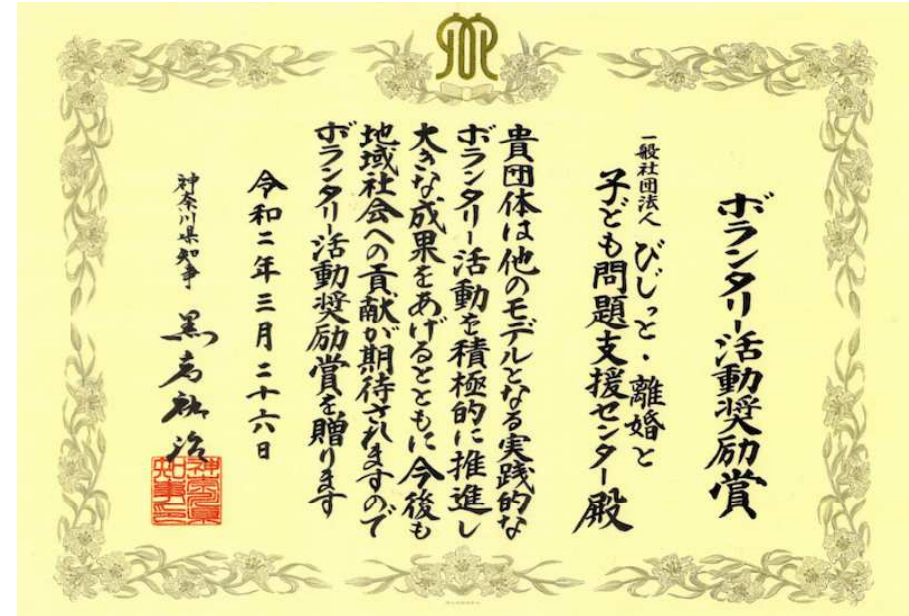 ボランタリー活動奨励賞
一般社団法人 びじっと・離婚と
子ども問題支援センター 殿
貴団体は他のモデルとなる実践的な
ボランタリー活動を積極的に推進し
大きな成果をあげるとともに今後も
地域社会への貢献が期待されますので
ボランタリー活動奨励賞を贈ります
令和二年三月二十六日
神奈川県知事 黒岩祐治
神奈川県
知事之印